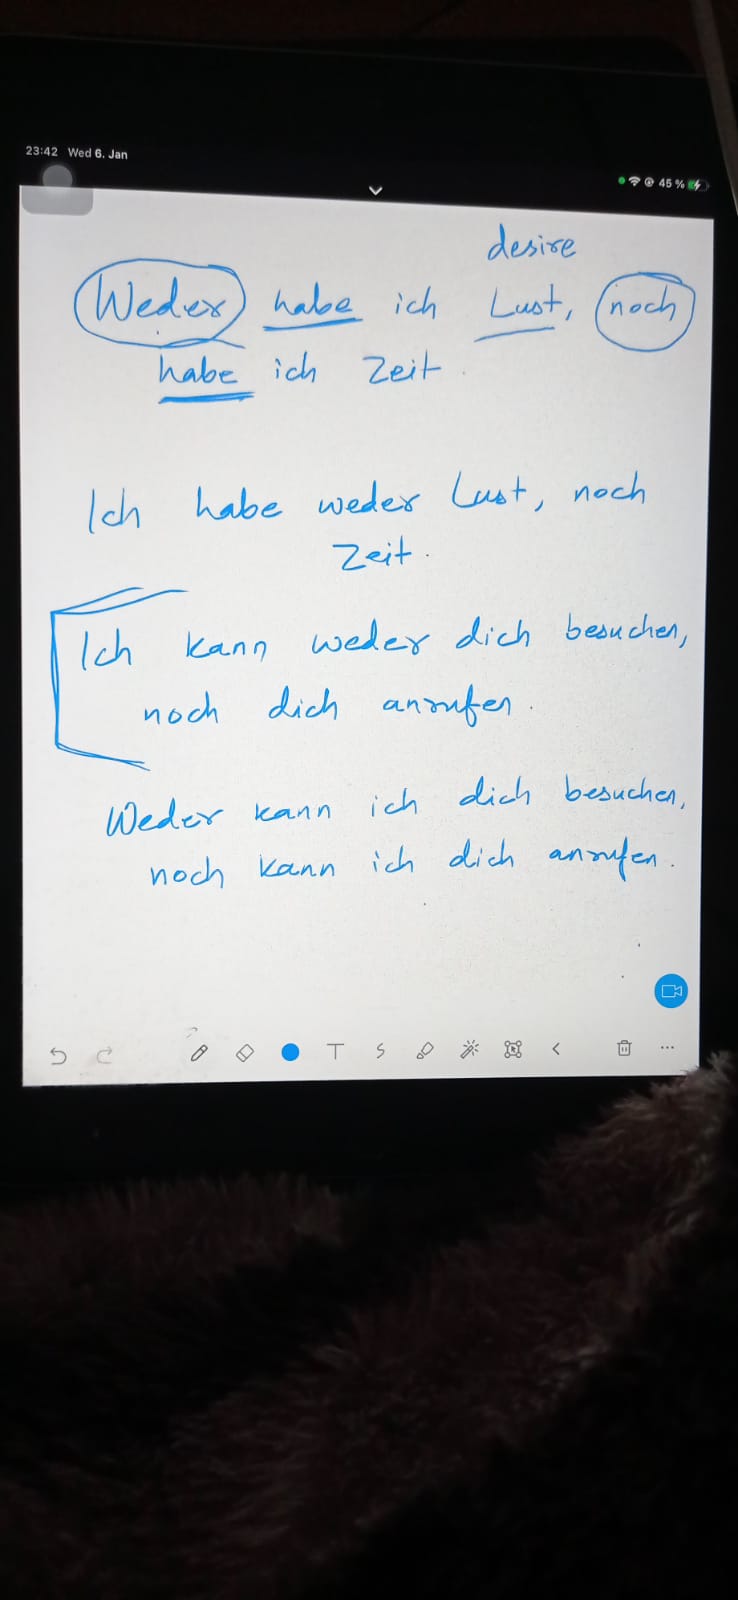 23:42 Wed 6. Jan
45 %
desire
Weder habe ich Lust, noch
habe ich Zeit.
Ich habe weder Lust, noch
Zeit.
Ich kann weder dich besuchen,
noch dich anrufen.
Weder kann ich dich besuchen,
noch kann ich dich anrufen.
T